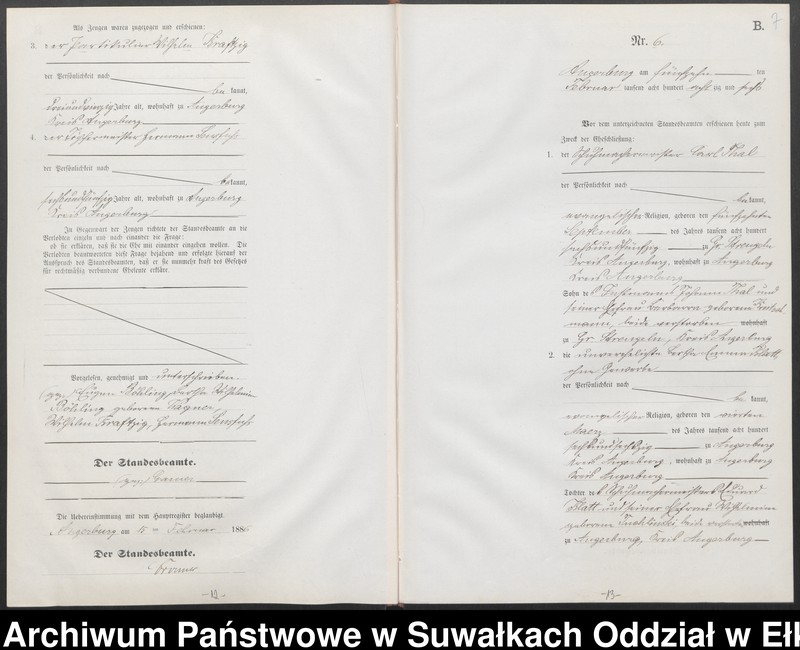 Als Zeugen waren zugezogen und erschienen:
3. der Partikulier Wilhelm Kraftzig
der Persönlichkeit nach
be kannt,
dreiundvierzig Jahre alt, wohnhaft zu Angerburg
Kreis Angerburg
4. der Tischlermeister Hermann
der Persönlichkeit nach
bekannt,
sechsundfünfzig Jahre alt, wohnhaft zu Angerburg
Kreis Angerburg
In Gegenwart der Zeugen richtete der Standesbeamte an die
Verlobten einzeln und nach einander die Frage:
ob sie erklären, daß sie die Ehe mit einander eingehen wollen. Die
Verlobten beantworteten diese Frage bejahend und erfolgte hierauf der
Ausspruch des Standesbeamten, daß er sie nunmehr kraft des Gesetzes
für rechtmäßig verbundene Eheleute erkläre.
Vorgelesen, genehmigt und unterschrieben
(gez.) Eugen Böhling, Bertha Wilhelmine
Böhling geborene Wagner,
Wilhelm Kraftzig, Hermann
Der Standesbeamte.
(gez.)
Die Uebereinstimmung mit dem Hauptregister beglaubigt
Angerburg am 15ten Februar 1886
Der Standesbeamte.
-12-
7
B.
Nr. 6.
Angerburg am fünfzehn ten
Februar tausend acht hundert acht zig und sechs
Vor dem unterzeichneten Standesbeamten erschienen heute zum
Zweck der Eheschließung:
1. der Schuhmachermeister Carl Thal
der Persönlichkeit nach
be kannt,
evangelischer Religion, geboren den fünfzehnten
September des Jahres tausend acht hundert
sechsundfünfzig zu Gr. Strengeln
Kreis Angerburg, wohnhaft zu Angerburg
Kreis Angerburg
Sohn des Instmann Johann Thal und
seiner Ehefrau Barbara geborene
mann, beide verstorben wohnhaft
zu Gr. Strengeln, Kreis Angerburg
2. die unverehelichte Bertha Emma Klatt
ohne Gewerbe
der Persönlichkeit nach
be kannt,
evangelischer Religion, geboren den vierten
Maerz des Jahres tausend acht hundert
sechsundsechszig zu Angerburg
Kreis Angerburg, wohnhaft zu Angerburg
Kreis Angerburg
Tochter des Schuhmachermeisters Eduard
Klatt und seiner Ehefrau Wilhelmine
geborene beide wohnhaft
zu Angerburg, Kreis Angerburg
-13-
Archiwum Państwowe w Suwałkach Oddział w Ełk